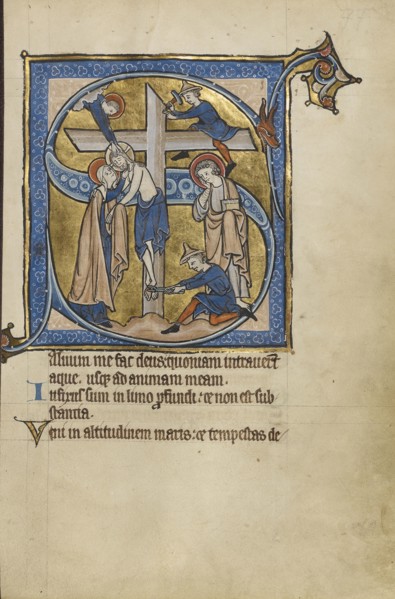 Saluum me fac deus: quoniam intrauert̄
aque. usq; ad animam meam.
Infixus sum in limo ꝓfundi: ⁊ non est sub
stantia.
Veni in altitudinem maris: ⁊ tempestas de